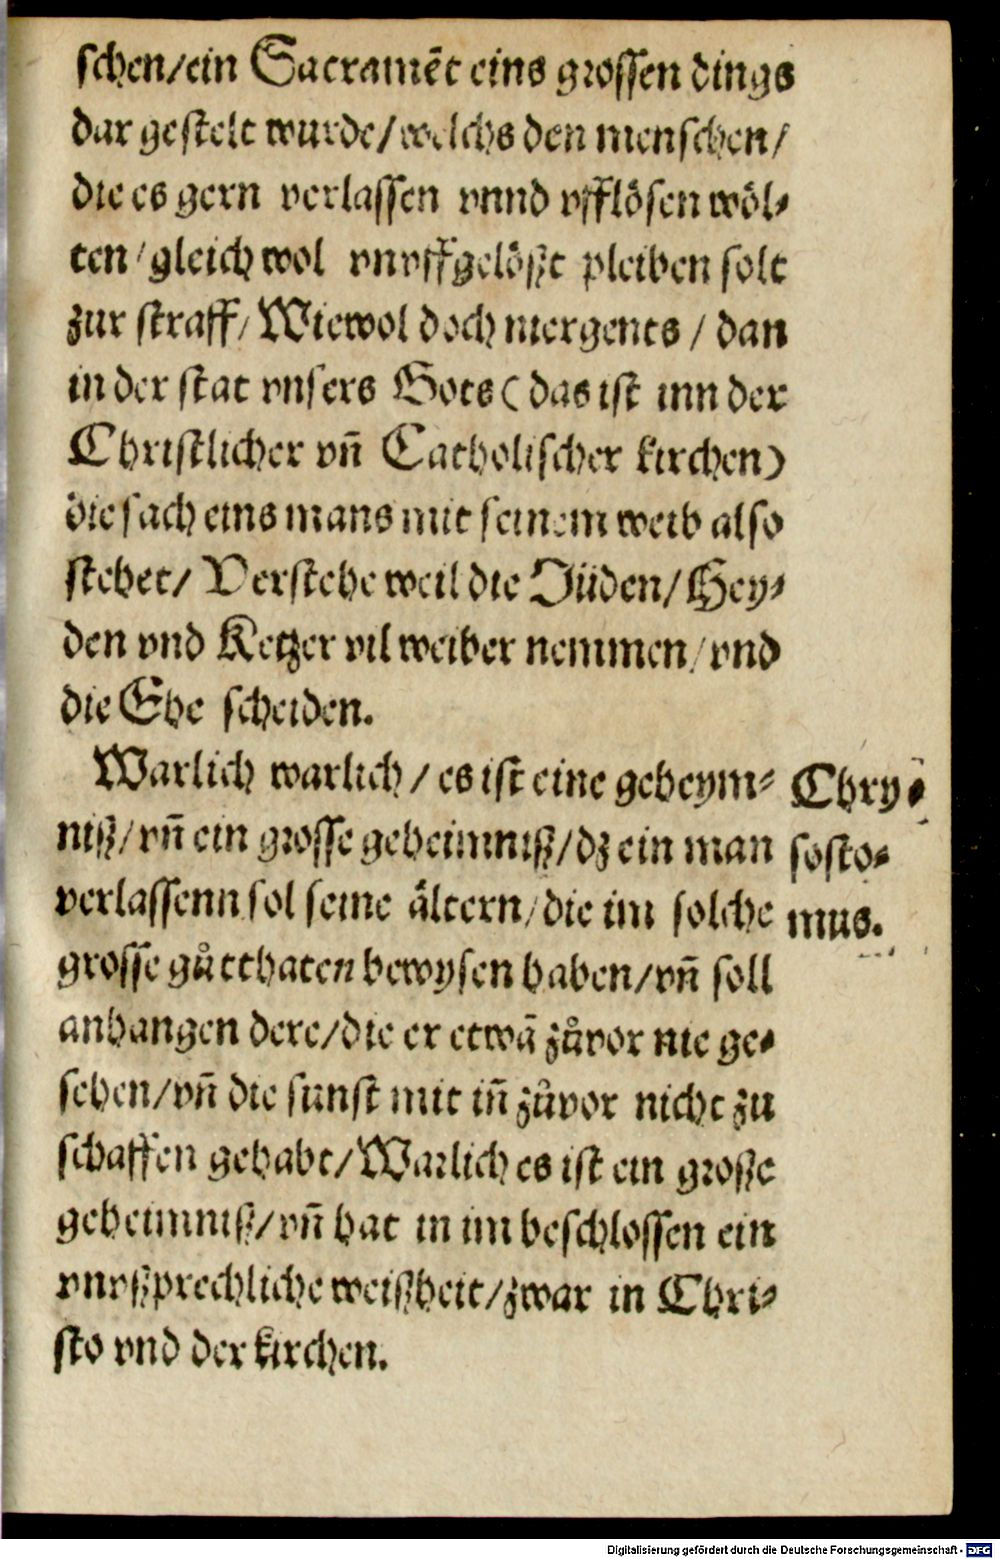 schen/ein Sacramēt eins grossen dings
dar gestelt wurde/welchs den menschen/
die es gern verlassen vnnd vfflösen wöl⸗
ten/gleich wol vnvffgelößt pleiben solt
zur straff/Wiewol doch niergents/dan
in der stat vnsers Gots(das ist inn der
Christlicher vn̄ Catholischer kirchen)
die sach eins mans mit seinem weib also
stehet/Verstehe weil die Jüden/Hey⸗
den vnd Ketzer vil weiber nemmen/vnd
die Ehe scheiden.
Warlich warlich/es ist eine geheym⸗
niß/vn̄ ein grosse geheimniß/dz ein man
verlassenn sol seine ältern/die im solche
grosse gůtthaten bewysen haben/vn̄ soll
anhangen dere/die er etwā zůvor nie ge⸗
sehen/vn̄ die sunst mit in̄ zůvor nicht zu
schaffen gehabt/Warlich es ist ein große
geheimniß/vn̄ hat in im beschlossen ein
vnvßprechliche weißheit/zwar in Chri⸗
sto vnd der kirchen.
Chry⸗
sosto⸗
mus.
Digitalisierung gefördert durch die Deutsche Forschungsgemeinschaft - DFG